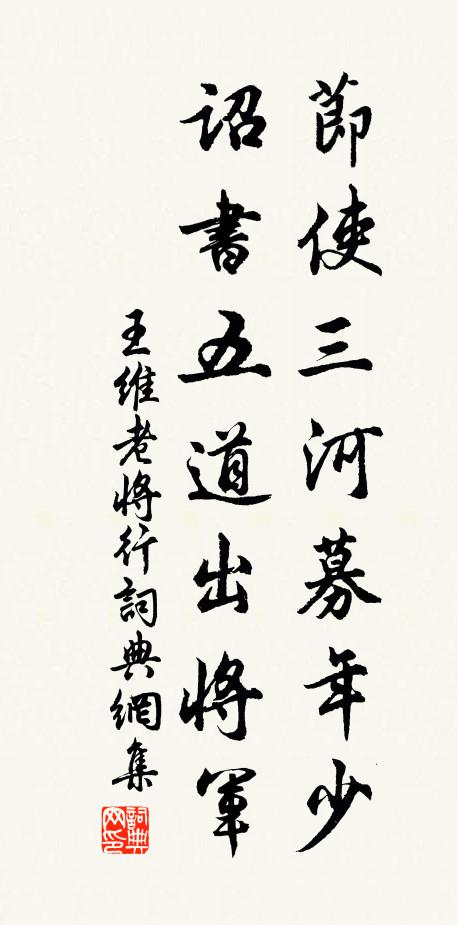 節使三河募年少
詔書五道出將軍
王維老將行詞典網集
詞典网印